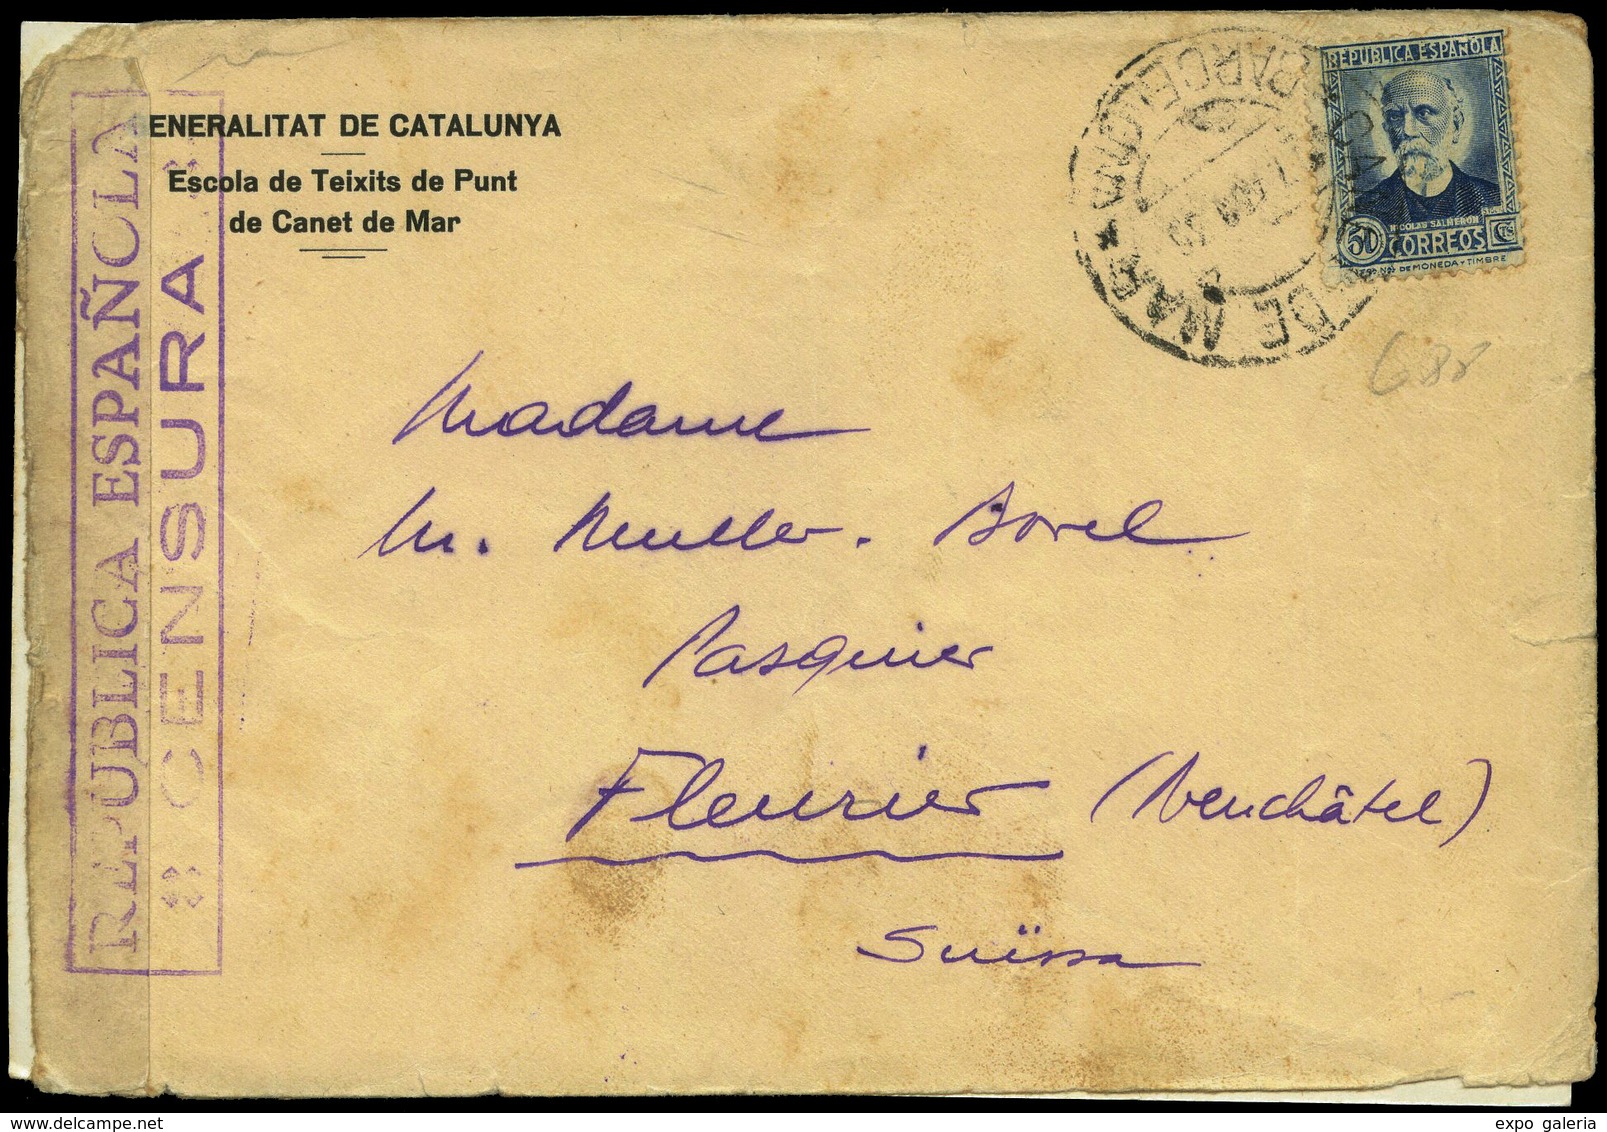 ENERALITAT DE CATALUNYA
Escola de Teixits de Punt
de Canet de Mar
REPÚBLICA ESPAÑOLA
CENSURA
REPUBLICA ESPAÑOLA
NICOLAS SALMERON
50 CORREOS CTS
DE MONEDA Y TIMBRE
DE MAR * BARCELONA
688
Madame
M. Muller. Borel
Pasquier
Fleurier (Neuchâtel)
Suïssa
expo galeria
delcampe.net